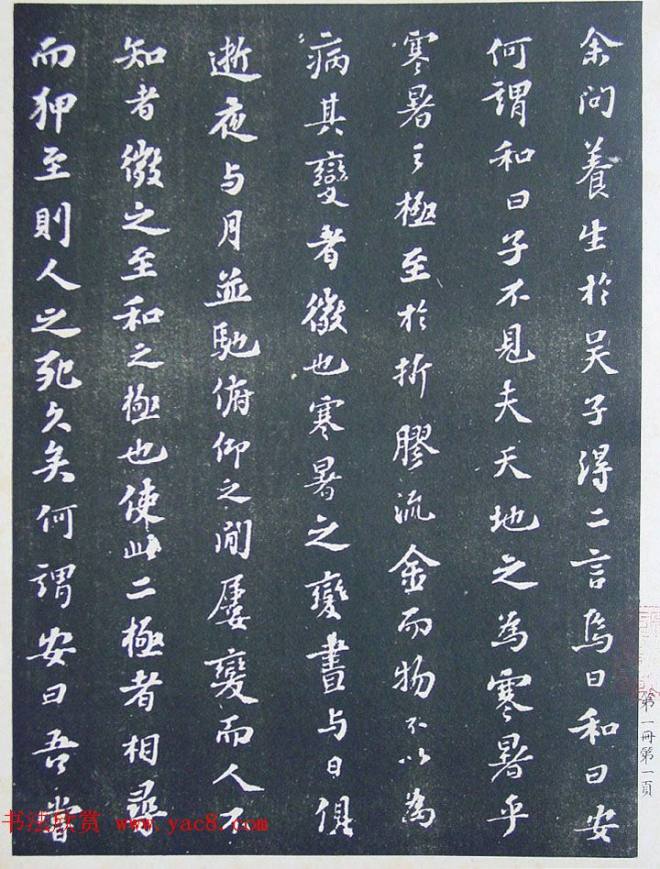 余问養生於吴子得二言焉曰和曰安
何謂和曰子不見夫天地之為寒暑乎
寒暑之極至於折膠流金而物不以為
病其變者微也寒暑之變晝与日俱
逝夜与月並馳俯仰之间屢變而人不
知者微之至和之極也使此二極者相尋
而狎至則人之死久矣何謂安曰吾嘗
第一冊第一頁
书法欣赏 www.yac8.com